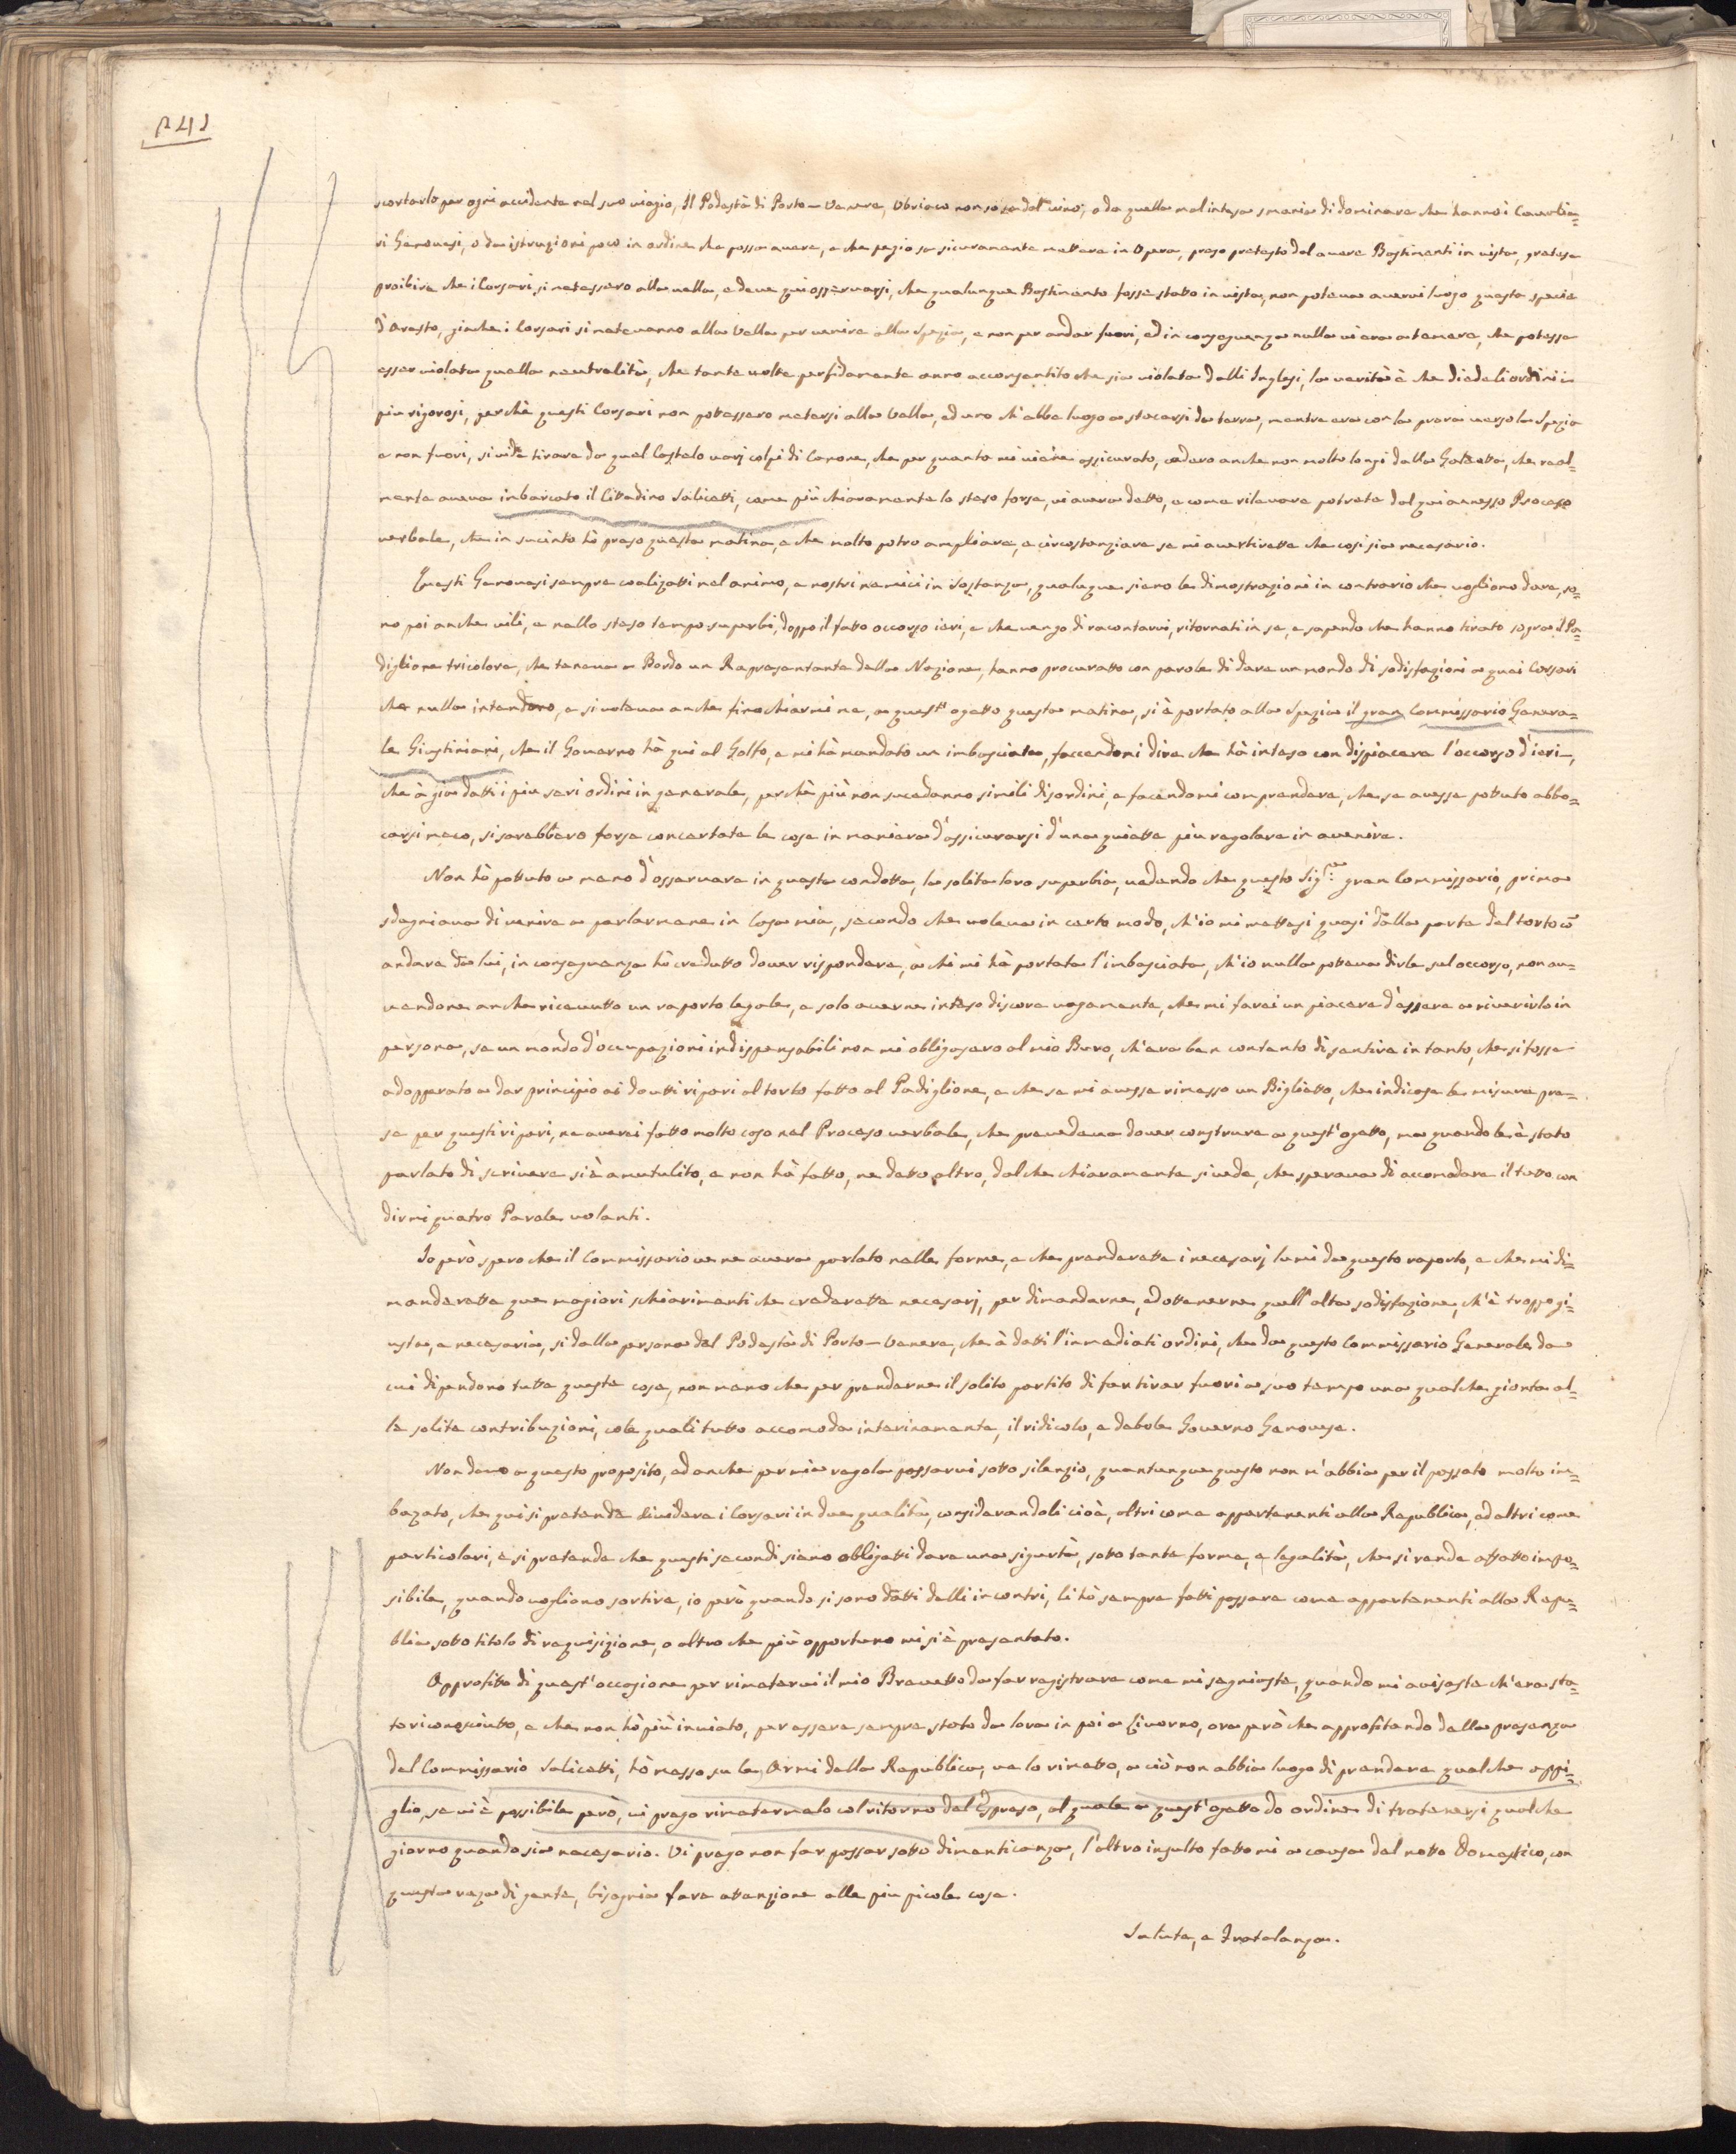 241
scortarlo per ogni accidente nel suo viagio, Il Podestà di Porto-Venere, Ubriaco non so se dal vino, o da quella mal intesa smania di dominare che hanno i Cavalie=
ri Genovesi, o da istruzioni poco in ordine che possa avere, e che pegio sa sicuramente mettere in Opera, preso pretesto dal avere Bastimenti in vista, pretese
proibire che i Corsari, si metessero alla vella, e deve qui osservarsi, che qualunque Bastimento fosse stato in vista, non poteva avervi luogo questa specie
d'aresto, giache i Corsari si metevanno alla Vella per venire alla Spezia, e non per andar fuori, ed in conseguenza nulla vi era a temere, che potesse
esser violata quella neutralità, che tante volte perfidamente anno acconsentito che sia violata dalli Inglesi, la verità è che diede li ordini i
piu rigorosi, perchè questi Corsari non potessero metersi alla Vella, ed uno ch'ebbe luogo a stacarsi da terra, mentre era con la prora verso la Spezia
e non fuori, si vide tirare da quel Castelo varj colpi di Canone, che per quanto mi viene assicurato, cadero anche non molto longi dalla Galeotta, che real=
mente aveva imbarcato il Cittadino Salicetti, come più chiaramente lo steso forse, vi avera detto, e come rilevare potrete dal qui annesso Proceso
verbale, che in sucinto hò preso questa matina, e che molto potro ampliare, e circostanziare se mi avertirette che cosi sia necesario.
Questi Genovesi sempre coalizatti nel animo, e nostri nemici in Sostanza, qualuque siano le dimostrazioni in contrario che vogliono dare, so=
no poi anche vili, e nello steso tempo superbi, doppo il fatto occorso ieri, e che vengo di racontarvi, ritornati in se, e sapendo che hanno tirato sopra il Pa=
diglione tricolore, che teneva a Bordo un Rapresantante della Nazione, hanno procuratto con parole di dare un mondo di sodisfazioni a quei Corsari
che nulla intendono, e si voleva anche finochiarmi me, a quest' ogetto questa matina, si è portato alla Spezia il gran Commissario Genera=
le Giustiniani, che il Governo hà qui al Golfo, e mi hà mandato un imbasciata, faccendomi dire che hà inteso con dispiacere l'occorso d'ieri,
che à gia datti i piu seri ordini in generale, perchè più non sucedanno simili disordini, e facendomi comprendere, che se avesse pottuto abbo=
carsi meco, si sarebbero forse concertate le cose in maniera d'assicurarsi d'una quiette piu regolare in avenire.
Non hò pottuto a meno d'osservare in questa condotta, la solita loro superbia, vedendo che questo Sig.re gran Commissario, prima
sdegniava di venire a parlarmene in Casa mia, secondo che voleva in certo modo, ch'io mi mettesi quasi dalla parte del torto cō
andare da lui, in conseguenza hò creduto dover rispondere, à chi mi hà portata l'imbasciata, ch'io nulla potteva dirle sul occorso, non a=
vendone anche ricevutto un raporto legale, e solo averne inteso discore vagamente, che mi farei un piacere d'essere a riverirlo in
persona, se un mondo d'occupazioni indispensabili non mi obligasero al mio Buro, ch'era ben contento di sentire in tanto, che si fosse
adopperato a dar principio ai dovuti ripari al torto fatto al Padiglione, e che se mi avesse rimesso un Biglietto, che indicase le misure pre=
se per questi ripari, ne averei fatto molto caso nel Proceso verbale, che prevedeva dover construre a quest'ogetto, ma quando le è stato
parlato di scrivere si è amutulito, e non hà fatto, ne detto altro, dal che chiaramente si vede, che sperava di accomodare il tutto con
dirmi quatro Parole volanti.
Io però spero che il Commissario ve ne avera parlato nelle forme, e che prenderette i necesarj lumi da questo raporto, e che mi di=
manderette que magiori schiarimenti che crederette necesarj, per dimandarne, ed ottenerne quell'alta sodisfazione, ch'è troppo gi=
usta, e necesaria, si dalla persona del Podestà di Porto-Venere, che à datti l'inmediati ordini, che da questo Commissario Generale da
cui dipendono tutte queste cose, non meno che per prenderne il solito partito di far tirar fuori a suo tempo una qualche gionta al=
le solite contribuzioni, cole quali tutto accomoda interinamente, il ridicolo, e debole Governo Genovese.
Non devo a questo proposito, ed anche per mia regola passarvi sotto silenzio, quantunque questo non m'abbia per il passato molto im=
bazato, che qui si pretende dividere i Corsari in due qualità, considerandoli cioè, altri come appartenenti alla Republica, ed altri come
particolari, e si pretende che questi secondi siano obligatti dare una sigurtà, sotto tante forme, e legalità, che si rende affatto impo=
sibile, quando vogliono sortire, io però quando si sono datti delli incontri, li hò sempre fatti passare come appartenenti alla Repu=
blica sotto titolo di requisizione, o altro che più opportuno mi si è presentato.
Approfitto di quest'occasione per rimetervi il mio Brevetto da far registrare come mi segniaste, quando mi avisaste ch'era sta=
to riconosciuto, e che non hò più inviato, per essere sempre stato da lora in poi a Livorno, ora però che approfitando della presenza
del Commissario Salicetti, hò messo su le Armi della Republica, ve lo rimetto, a ciò non abbia luogo di prendere qualche appi=
glio, se vi è possibile però, vi prego rimetermelo col ritorno del Espreso, al quale a quest'ogetto do ordine di tratenersi qualche
giorno quando sia necesario. Vi prego non far passar sotto dimenticanza, l'altro insulto fatto mi a causa del notto Domestico, con
questa raza di gente, bisognia fare attenzione alle piu picole cose.
Salute, e Fratelanza.